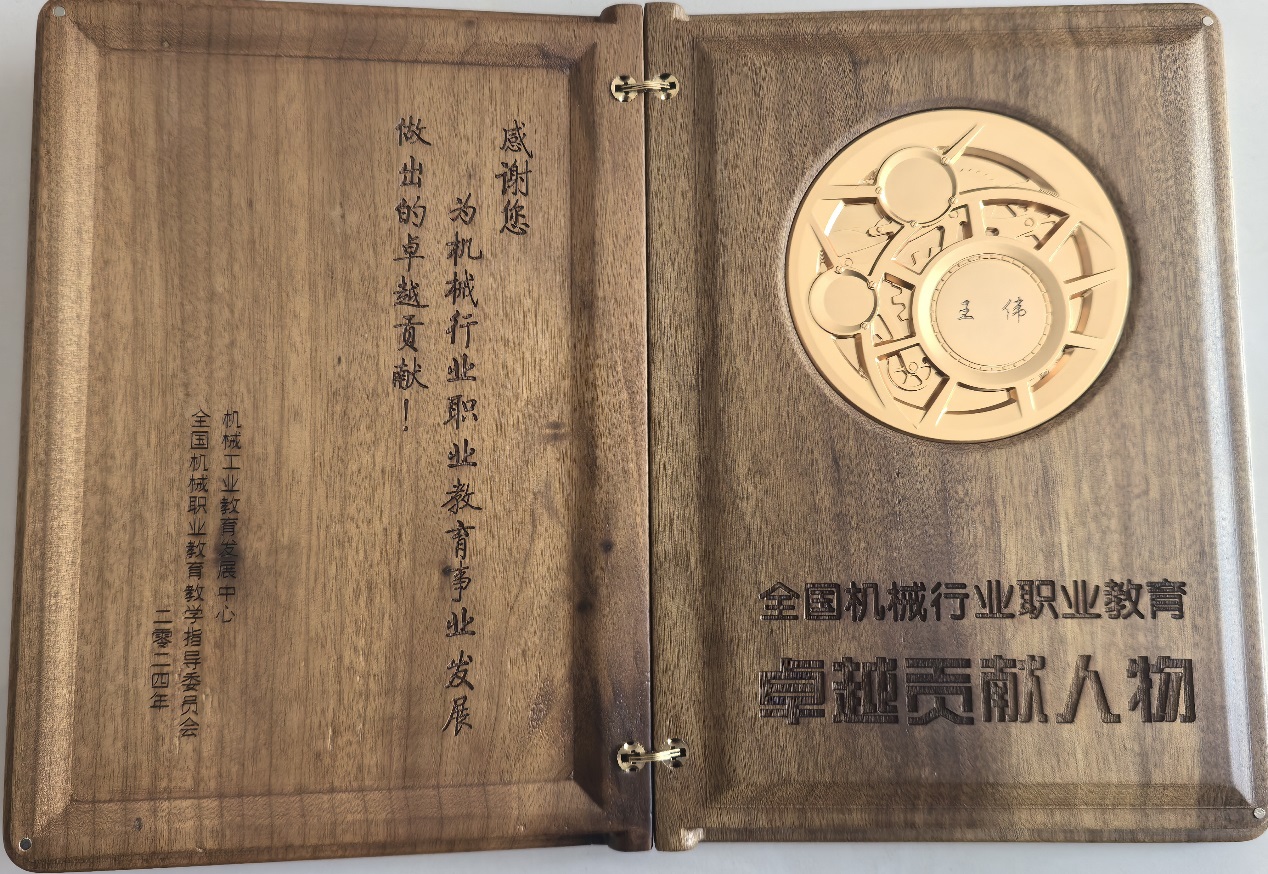 感谢您
为机械行业职业教育事业发展
做出的卓越贡献！
机械工业教育发展中心
全国机械职业教育教学指导委员会
二零二四年
王 伟
全国机械行业职业教育
卓越贡献人物